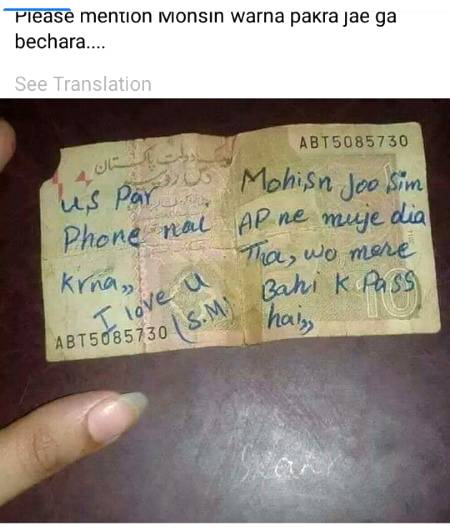 Please mention Mohsin warna pakra jae ga
bechara....
See Translation
ABT5085730
بینک دولت پاکستان
دس روپیہ
Mohisn Joo Sim
AP ne muje dia
Tha, wo mere
Bahi K Pass
hai,,
10
us Par
Phone nal
Krna,,
I love u
(S.M)
ABT5085730